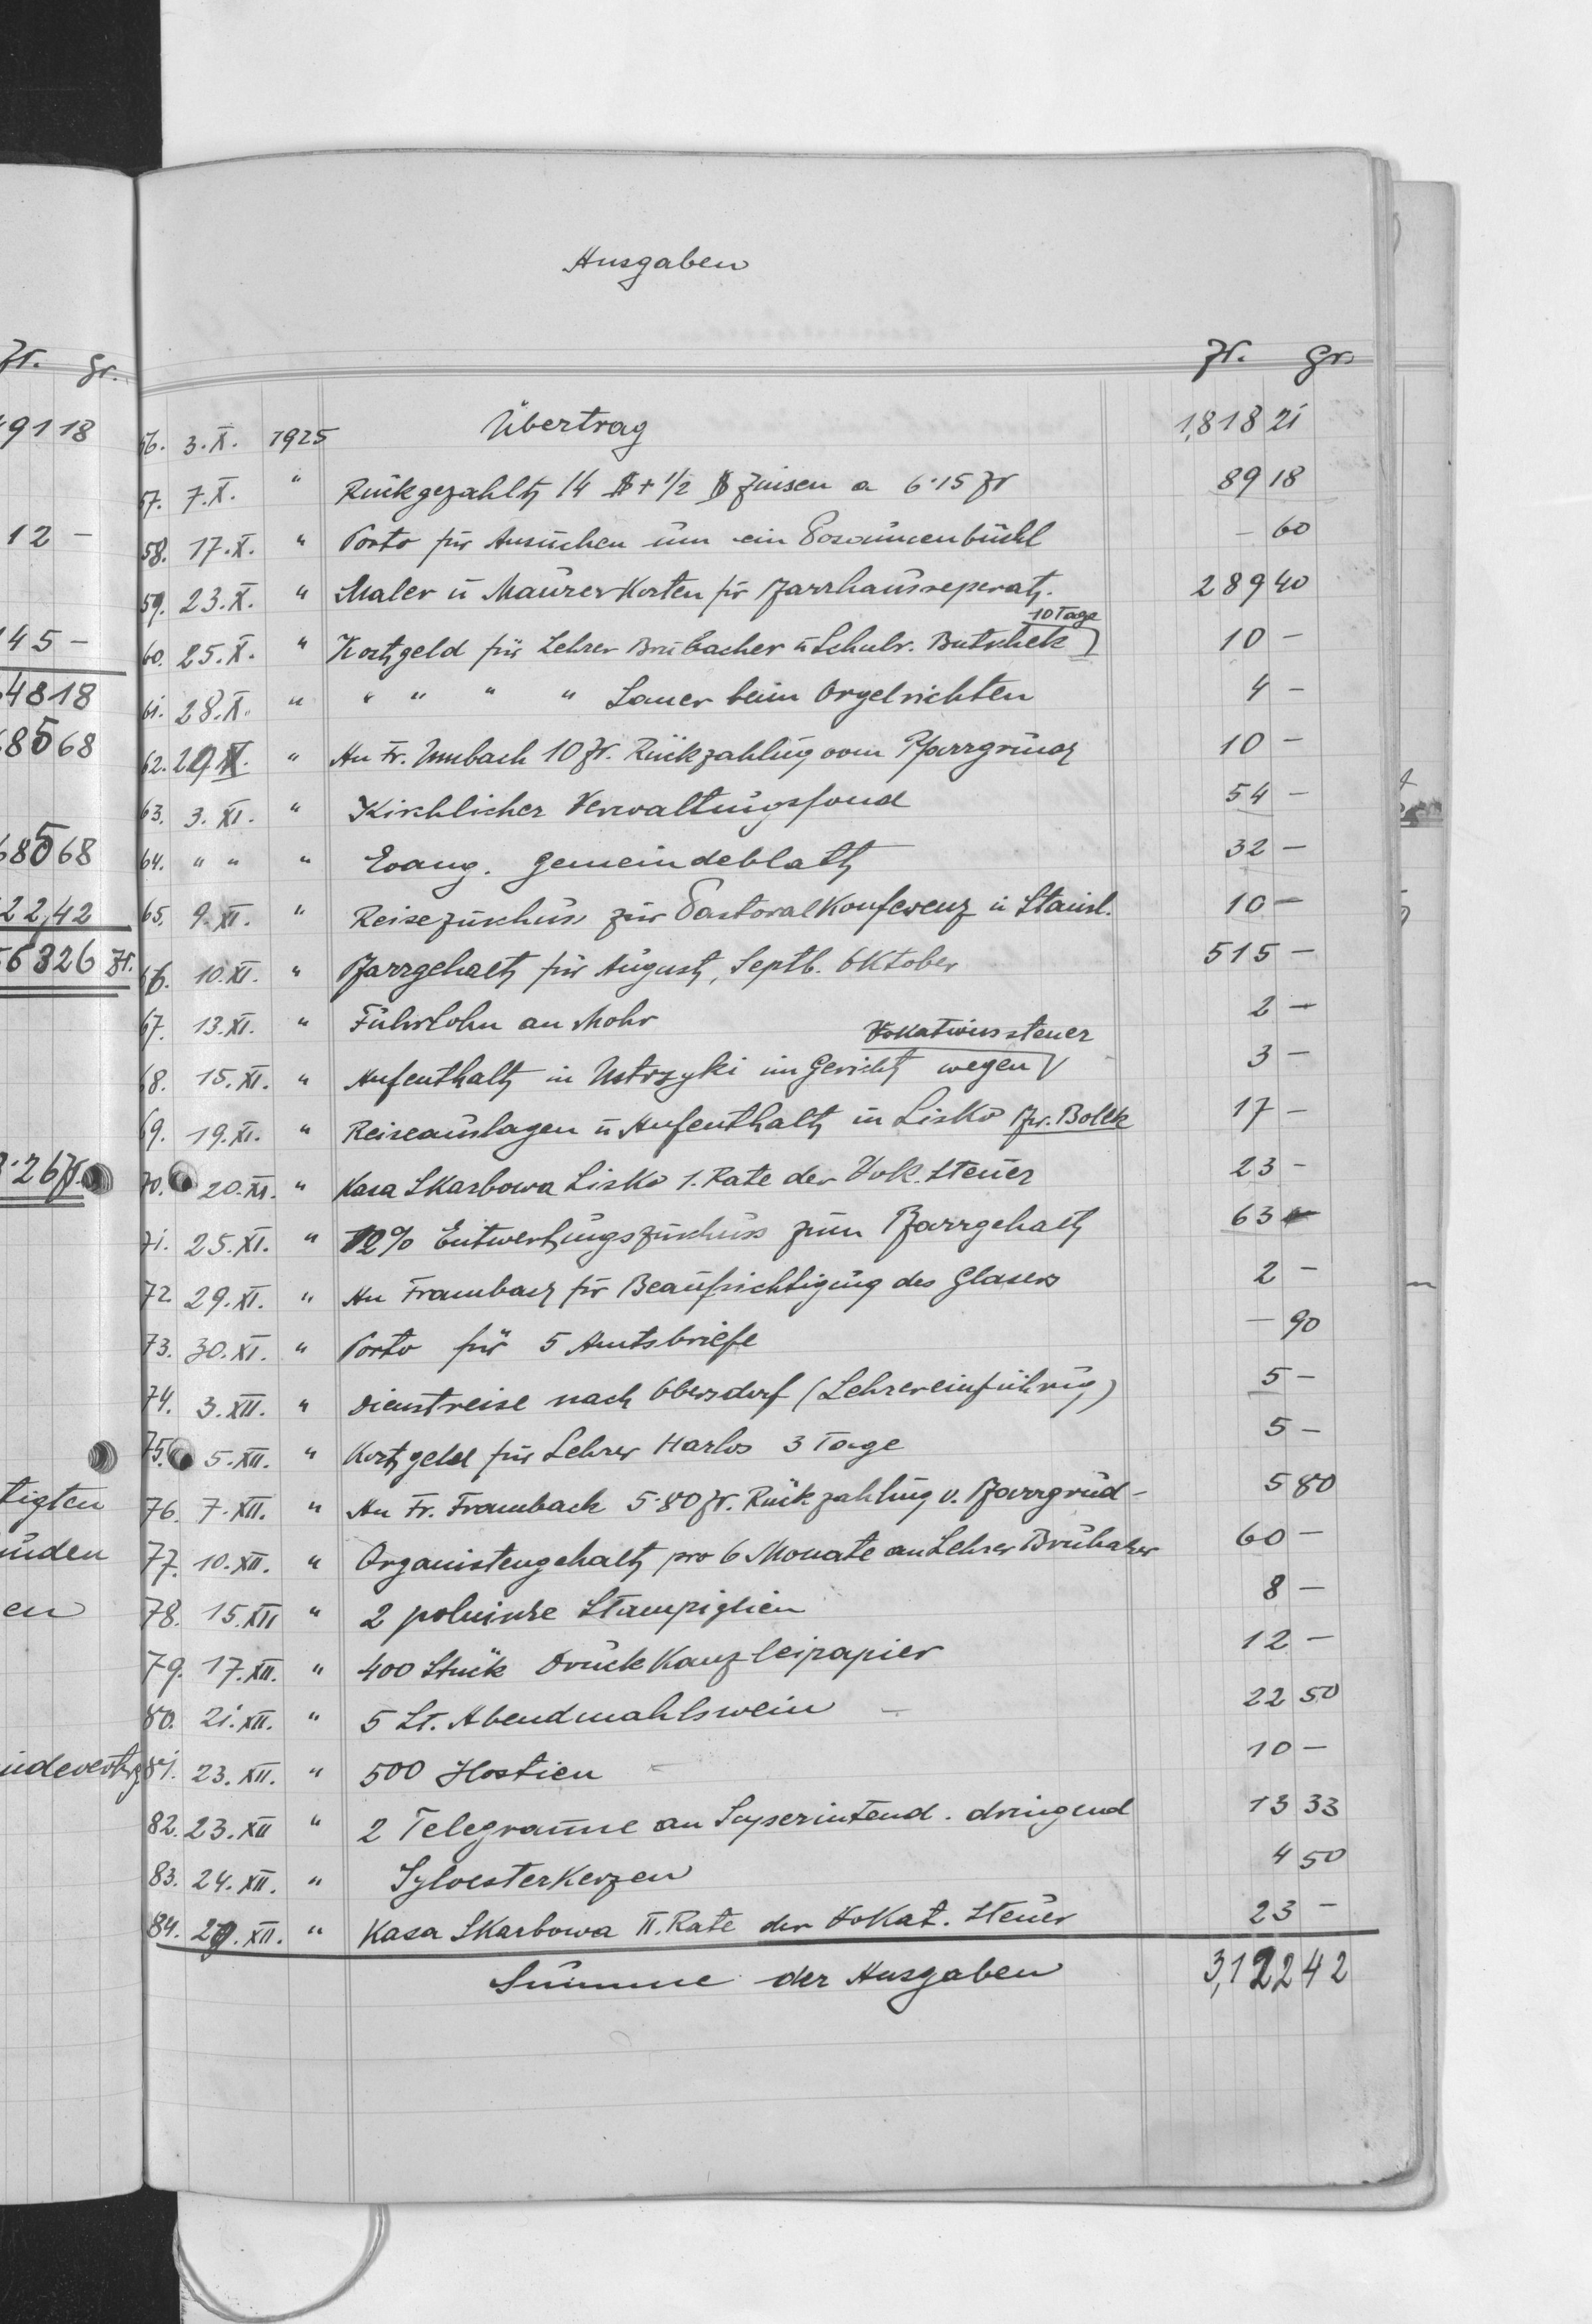 Ausgaben
Zł. Gr.
56. 3.X. 1925 Übertrag 1,818 21
57. 7.X. " Rückgezahlt 14 $ + 1/2 $ Zinsen a 6·15 Zł 89 18
58. 17.X. " Porto für Ansuchen um ein Posaunenbüchl – 60
59. 23.X. " Maler u Maurerkosten für Pfarrhausreperat. 289 40
10 Tage
60. 25.X. " Kostgeld für Lehrer Brubacher u Schulr. Butschek 10 –
61. 28.X. " " " " " Lauer beim Orgelrichten 4 –
62. 29.X. " An Fr. Umbach 10 Zł. Rückzahlung vom Pfarrgrund 10 –
63. 3.XI. " Kirchlicher Verwaltungsfond 54 –
64. " " " Evang. Gemeindeblatt 32 –
65. 9.XI. " Reisezuschuss zur Pastoralkonferenz in Stanisl. 10 –
66. 10.XI. " Pfarrgehalt für August, Septb. Oktober 515 –
67. 13.XI. " Fuhrlohn an Mohr 2 –
Vokationssteuer
68. 15.XI. " Aufenthalt in Ustrzyki im Gericht wegen 3 –
69. 19.XI. " Reiseauslagen u Aufenthalt in Lisko Pfr. Bolek 17 –
70. 20.XI. " Kasa Skarbowa Lisko 1. Rate der Vok. Steuer 23 –
71. 25.XI. " 12% Entwertungszuschuss zum Pfarrgehalt 63 –
72 29.XI. " An Frambach für Beaufsichtigung des Glasers 2 –
73. 30.XI. " Porto für 5 Amtsbriefe – 90
74. 3.XII. " Dienstreise nach Obersdorf (Lehrereinführung) 5 –
75. 5.XII. " Kostgeld für Lehrer Harlos 3 Tage 5 –
76. 7.XII. " An Fr. Frambach 5·80 Zł. Rückzahlung v. Pfarrgrund – 5 80
77. 10.XII. " Organistengehalt pro 6 Monate an Lehrer Brubacher 60 –
78. 15.XII " 2 polnische Stampiglien 8 –
79. 17.XII. " 400 Stück Druck Kanzleipapier 12 –
80. 21.XII. " 5 Lt. Abendmahlswein – 22 50
81. 23.XII. " 500 Hostien 10 –
82. 23.XII " 2 Telegramme an Superintend. dringend 13 33
83. 24.XII. " Sylvesterkerzen 4 50
84. 29.XII. " Kasa Skarbowa II. Rate der Vokat. Steuer 23 –
Summe der Ausgaben 3,122 42
Zł. Gr.
91 18
12 –
45 –
48 18
85 68
685 68
22,42
563 26 Zł.
3·26 Zł.
tigten
en